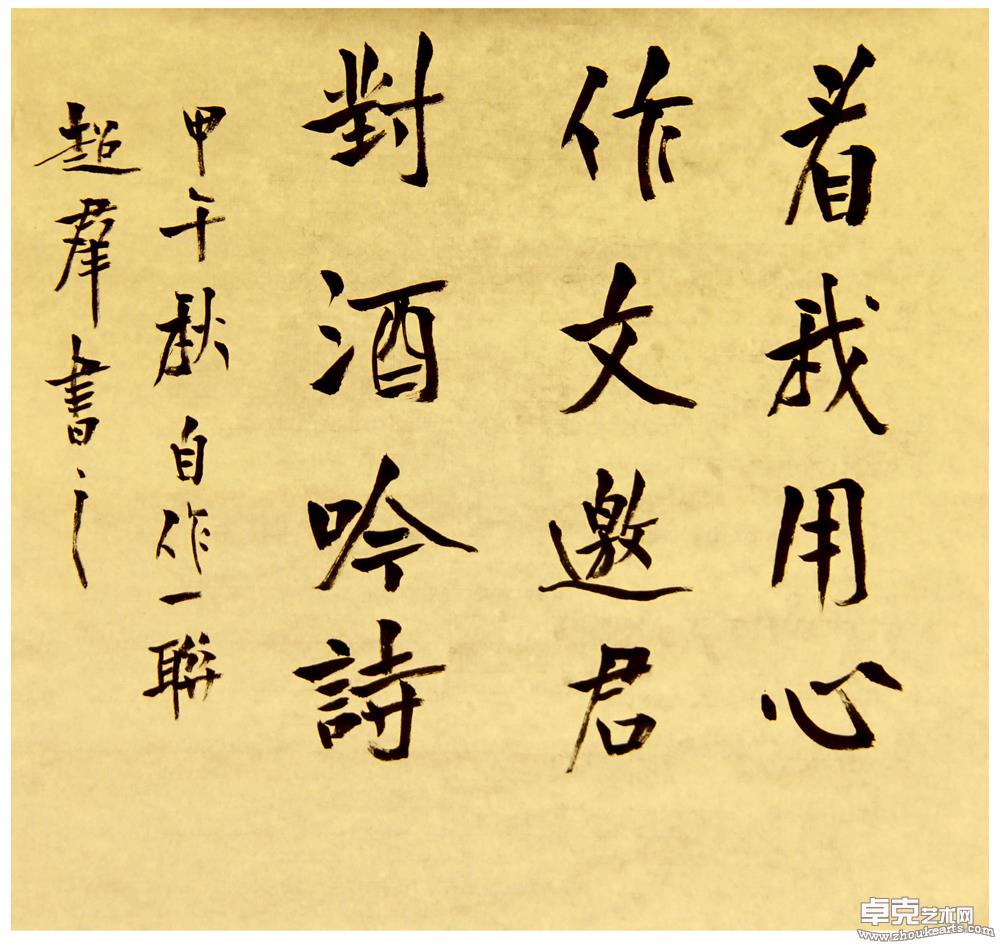 着我用心
作文邀君
對酒吟詩
甲午秋自作一聯
超群書之
卓克艺术网
www.zhoukearts.com